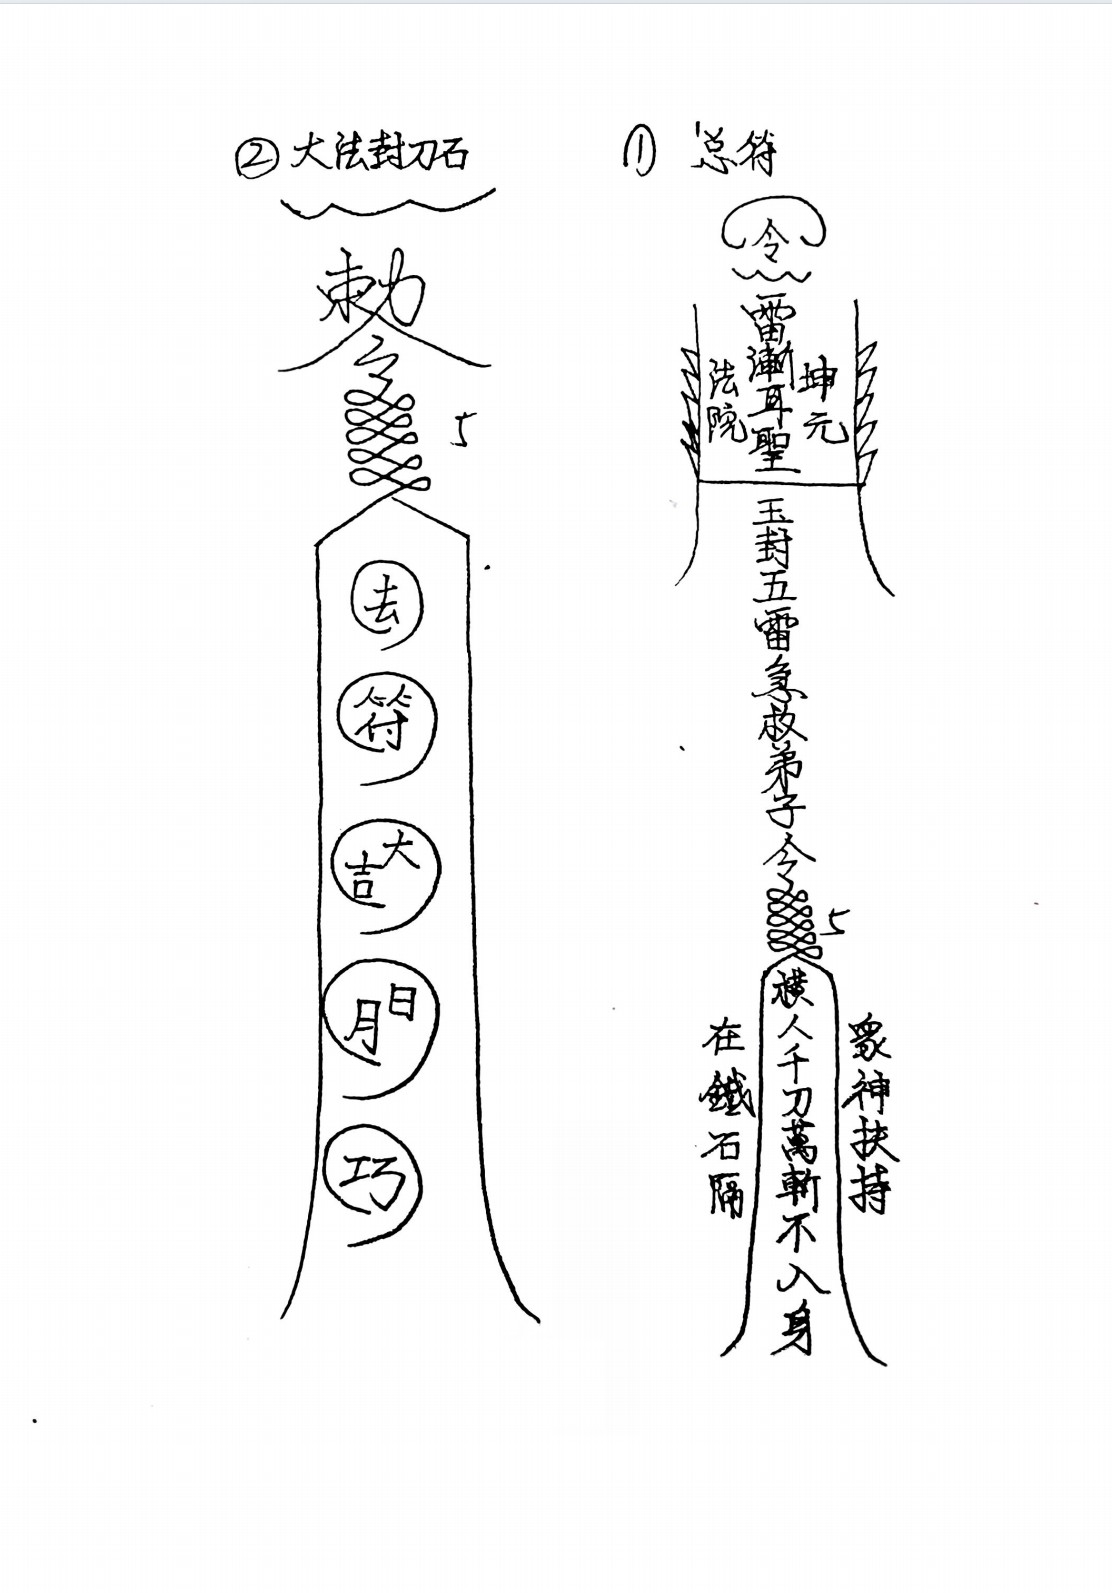 ① 总符
令
雷漸耳聖
坤元
法院
玉封五雷急救弟子令
5
横人千刀萬斬不入身
眾神扶持
在鐵石隔
② 大法封刀石
敕令
5
去
符
大吉
日月
巧